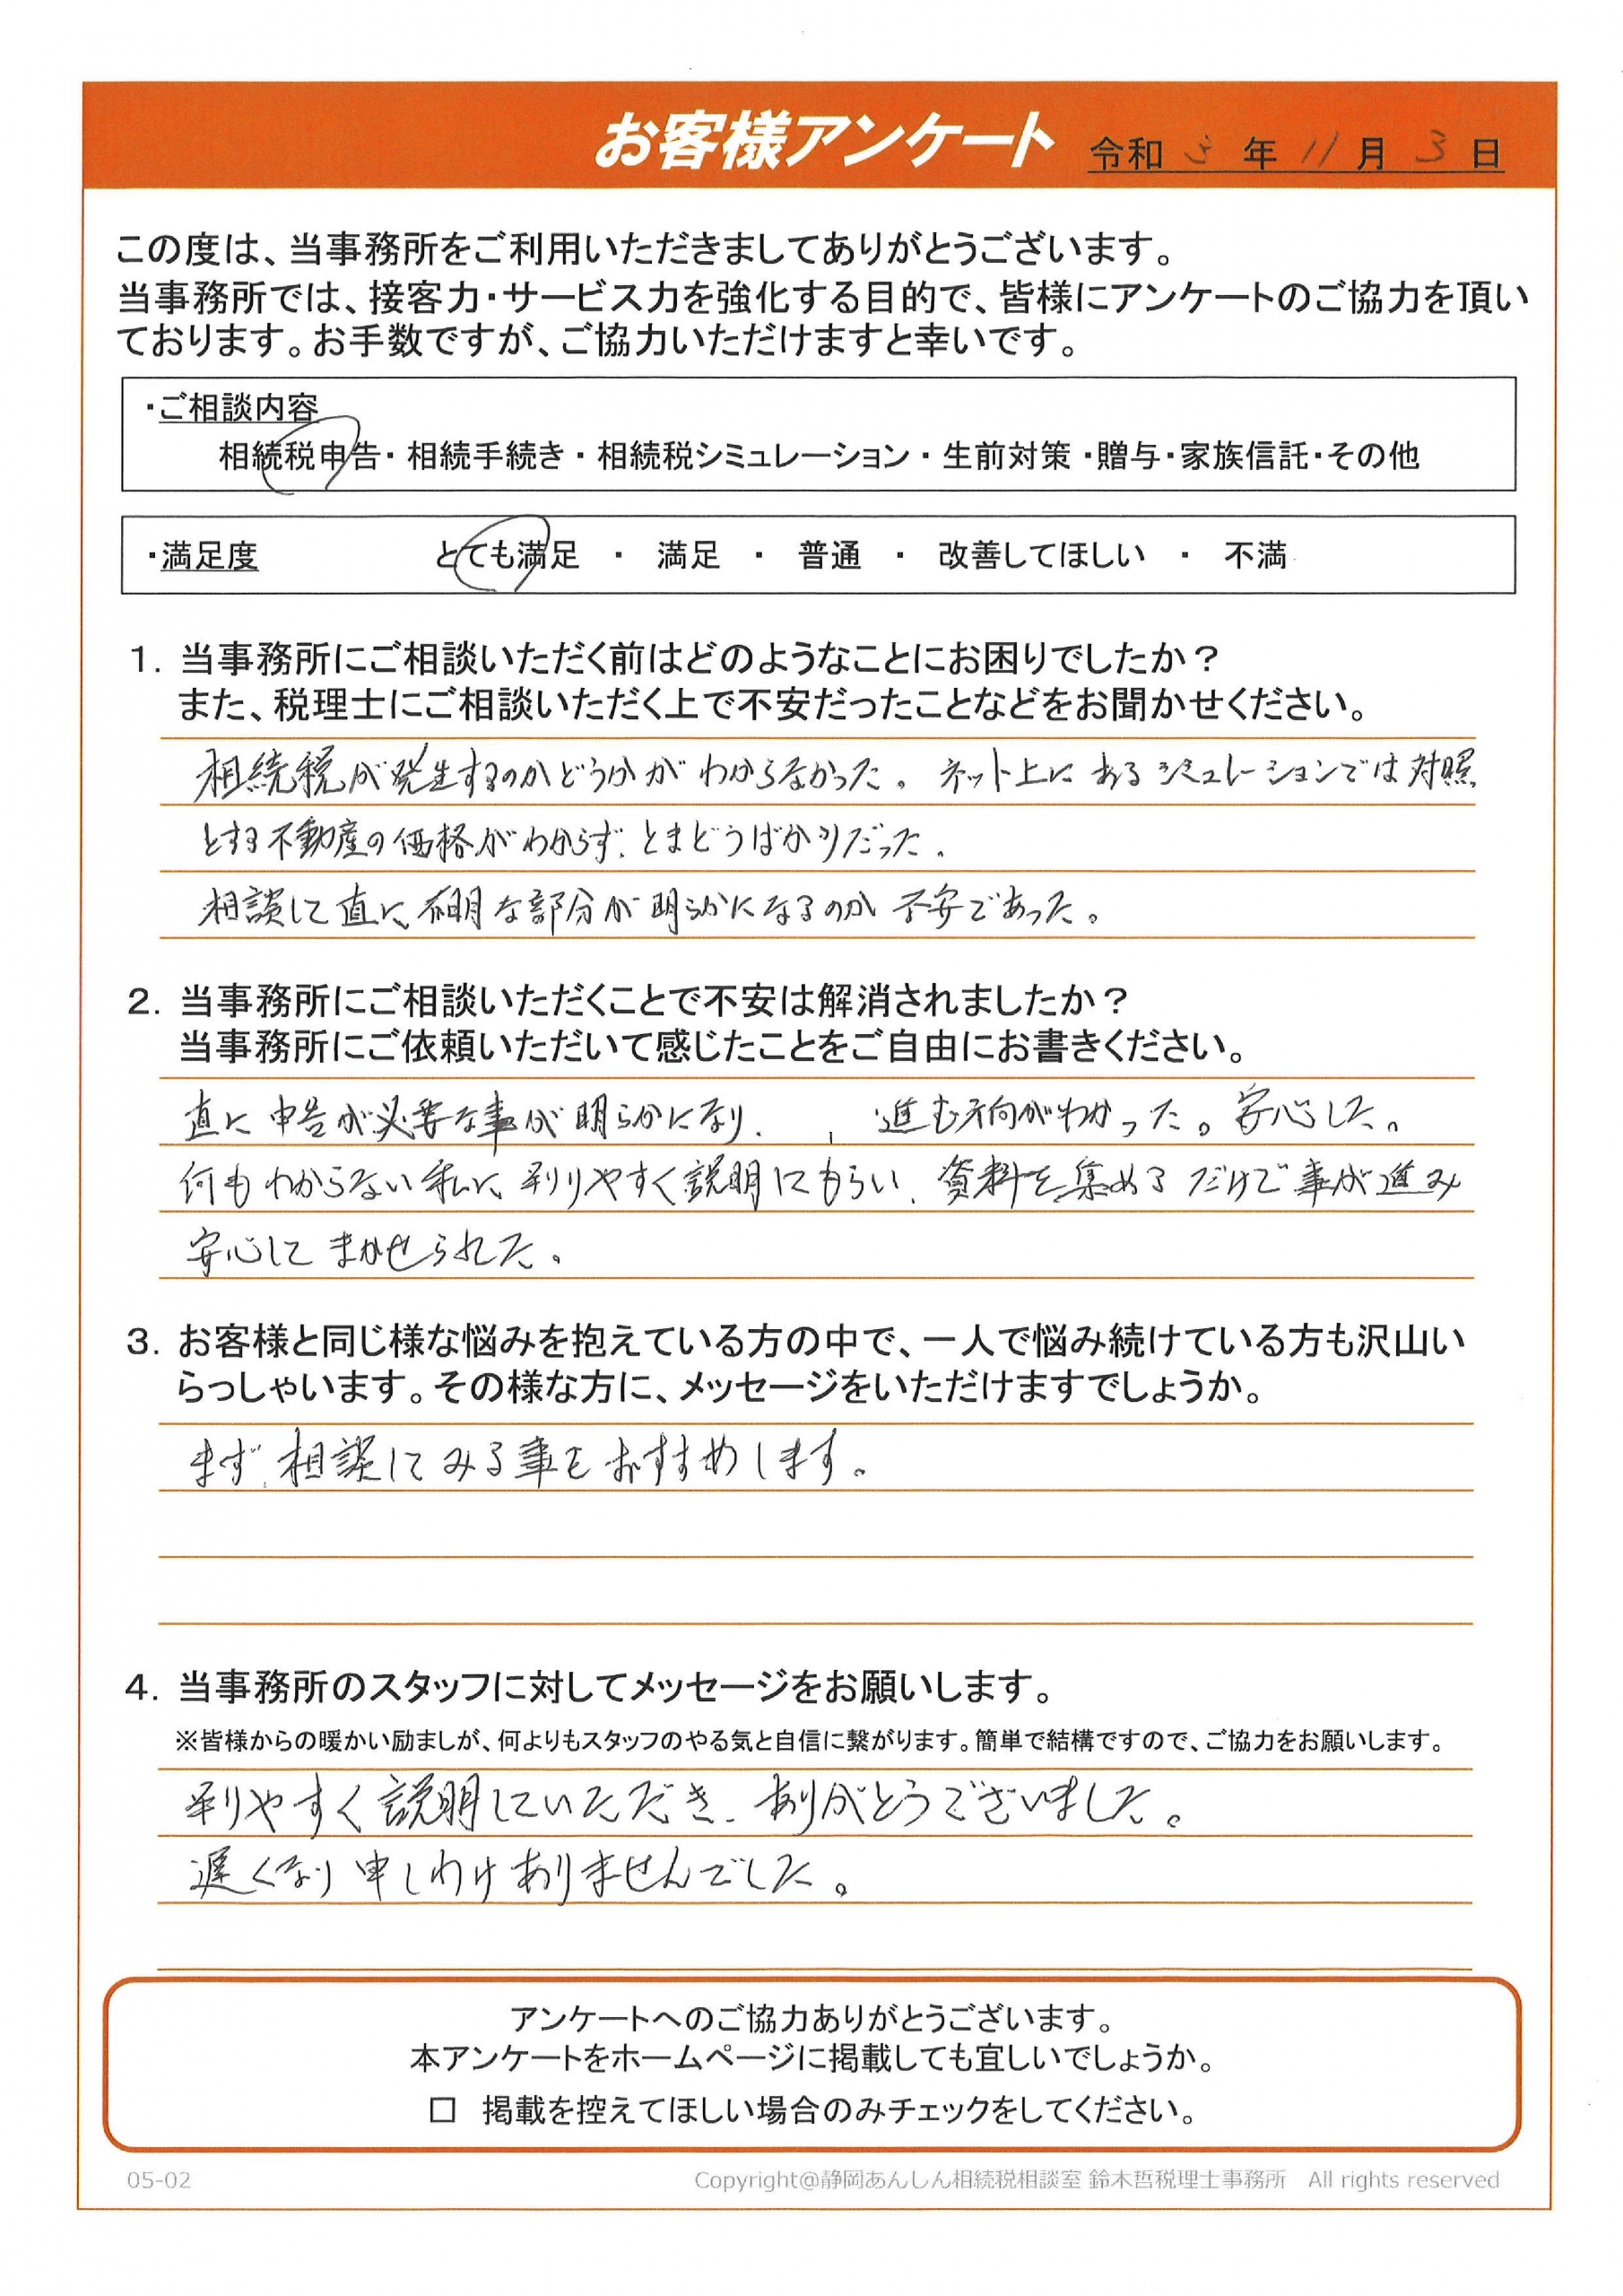 お客様アンケート 令和 3 年 11 月 3 日
この度は、当事務所をご利用いただきましてありがとうございます。
当事務所では、接客力・サービス力を強化する目的で、皆様にアンケートのご協力を頂い
ております。お手数ですが、ご協力いただけますと幸いです。
・ご相談内容
相続税申告・ 相続手続き ・ 相続税シミュレーション ・ 生前対策 ・贈与・家族信託・その他
・満足度 とても満足 ・ 満足 ・ 普通 ・ 改善してほしい ・ 不満
1. 当事務所にご相談いただく前はどのようなことにお困りでしたか？
また、税理士にご相談いただく上で不安だったことなどをお聞かせください。
相続税が発生するのかどうかがわからなかった。ネット上にあるシミュレーションでは対照
とする不動産の価格がわからず、とまどうばかりだった。
相談して直に、不明な部分が明らかになるのか不安であった。
2. 当事務所にご相談いただくことで不安は解消されましたか？
当事務所にご依頼いただいて感じたことをご自由にお書きください。
直に申告が必要な事が明らかになり、 、進む方向がわかった。安心した。
何もわからない私に、判りやすく説明してもらい、資料を集めるだけで事が進み
安心してまかせられた。
3. お客様と同じ様な悩みを抱えている方の中で、一人で悩み続けている方も沢山い
らっしゃいます。その様な方に、メッセージをいただけますでしょうか。
まず、相談してみる事をおすすめします。
4. 当事務所のスタッフに対してメッセージをお願いします。
※皆様からの暖かい励ましが、何よりもスタッフのやる気と自信に繋がります。簡単で結構ですので、ご協力をお願いします。
判りやすく説明していただき、ありがとうございました。
遅くなり申しわけありませんでした。
アンケートへのご協力ありがとうございます。
本アンケートをホームページに掲載しても宜しいでしょうか。
□ 掲載を控えてほしい場合のみチェックをしてください。
05-02 Copyright@静岡あんしん相続税相談室 鈴木哲税理士事務所 All rights reserved